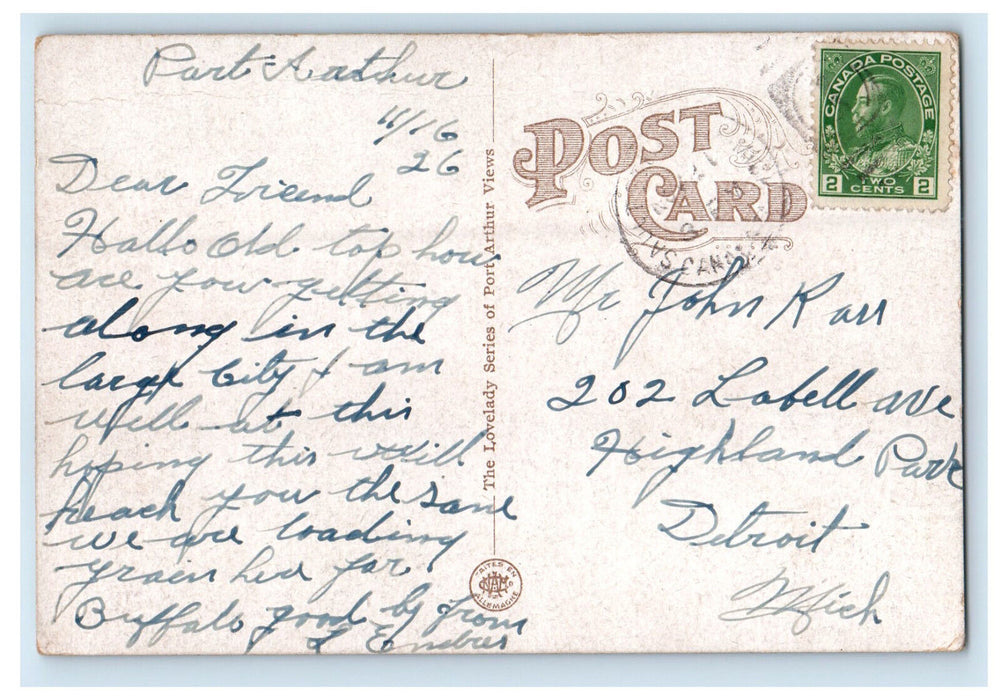 Port Arthur
11/16
26
Dear Friend
Hallo Old top how
are you getting
along in the
large City I am
well at this
hoping this will
reach you the same
we are loading
grain here for
Buffalo good by from
L Endres
The Lovelady Series of Port Arthur Views
FAITES EN
ALLEMAGNE
POST
CARD
CANADA POSTAGE
2 TWO CENTS 2
CANADA
Mr John Karr
202 Labell ave
Highland Park
Detroit
Mich